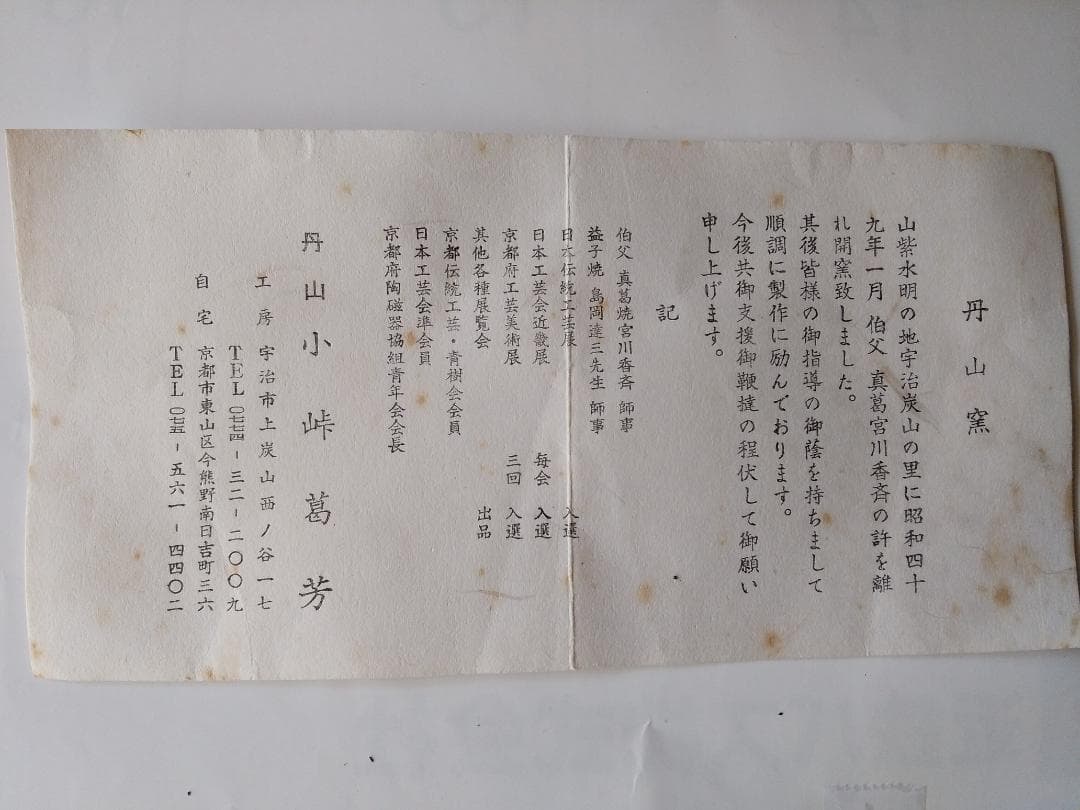 丹山窯
山紫水明の地宇治炭山の里に昭和四十
九年一月 伯父 真葛宮川香斉の許を離
れ開窯致しました。
其後皆様の御指導の御蔭を持ちまして
順調に製作に励んでおります。
今後共御支援御鞭撻の程伏して御願い
申し上げます。
記
伯父 真葛焼宮川香斉 師事
益子焼 島岡達三先生 師事
日本伝統工芸展 入選
日本工芸会近畿展 毎会 入選
京都府工芸美術展 三回 入選
其他各種展覧会 出品
京都伝統工芸・青樹会会員
日本工芸会準会員
京都府陶磁器協組青年会会長
丹山 小峠葛芳
工房 宇治市上炭山西ノ谷一七
TEL 〇七七四-三二-二〇〇九
自宅 京都市東山区今熊野南日吉町三六
TEL 〇七五-五六一-四四〇二